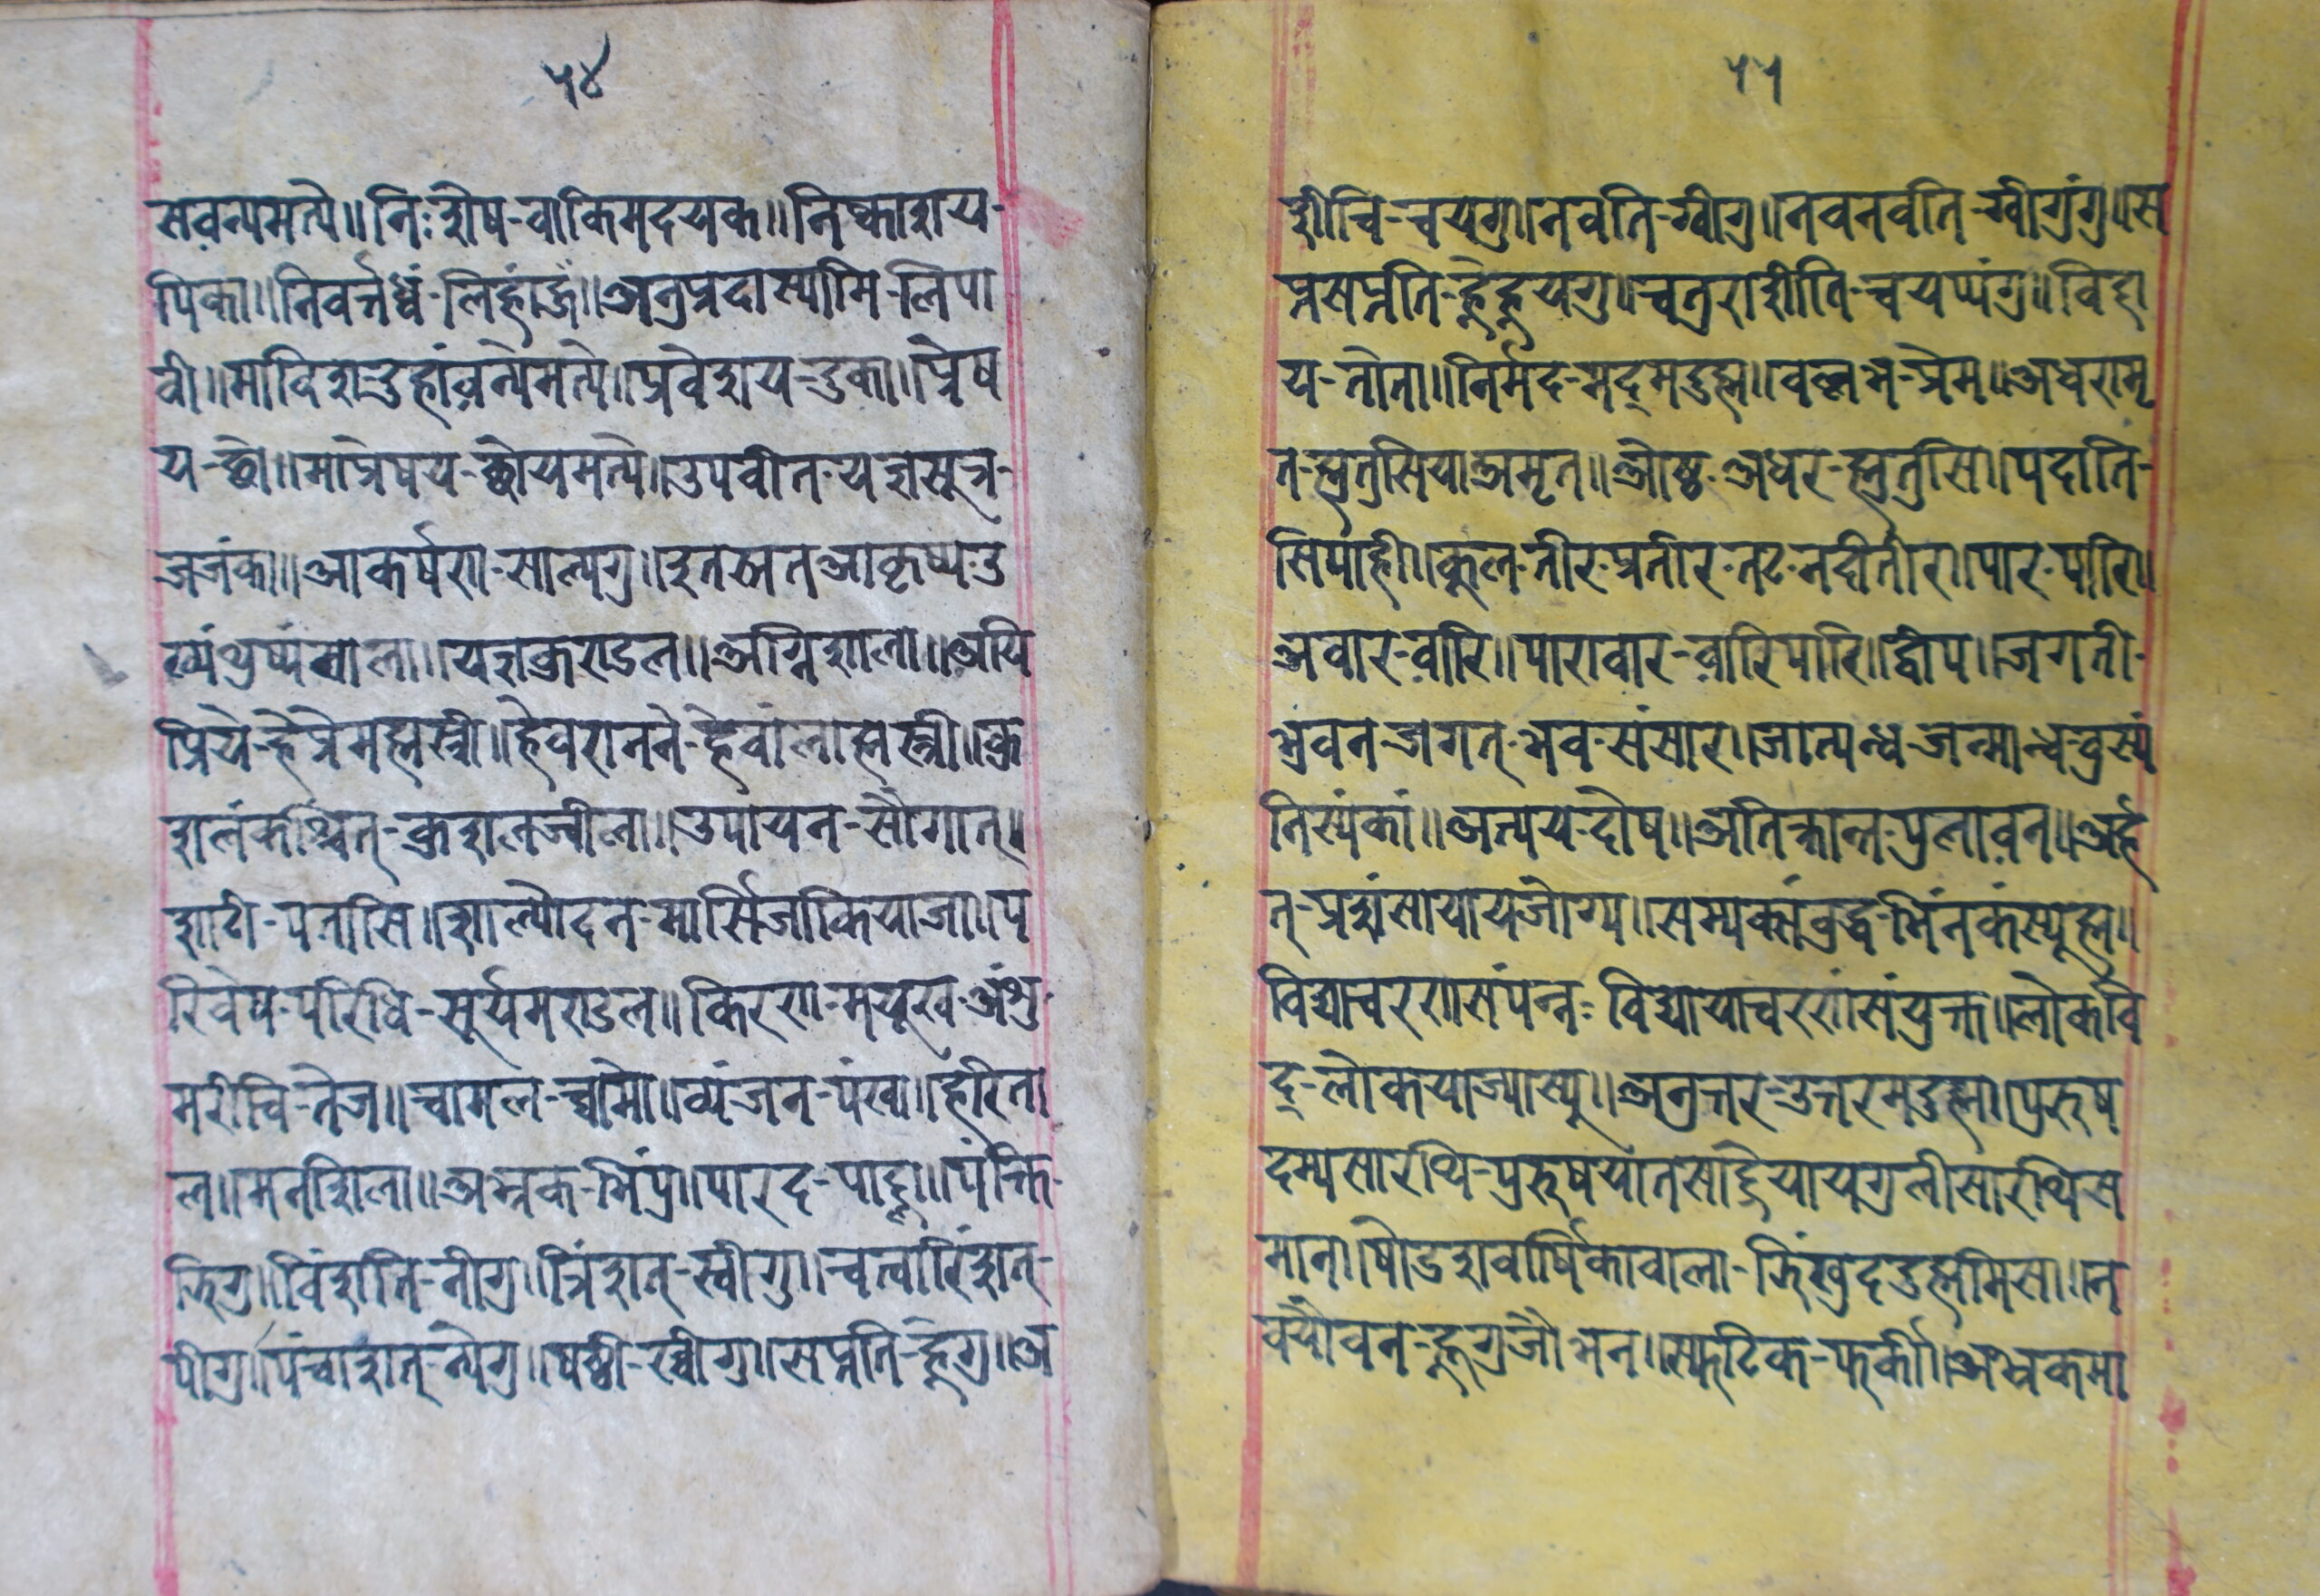 ५४
सवन्यमत्ये॥निःशेष-वाकिमदयक॥निष्काशय-
पिका॥निवर्त्तध्वं-लिहांजुं॥अनुप्रदास्यामि-लिपा
वी॥माविश-दुहांवन्यमत्ये॥प्रवेशय-दुका॥प्रेष
य-छो॥माप्रेषय-छोयमत्ये॥उपवीत-यज्ञसूत्र-
जजंका॥आकर्षण-सात्यगु॥आकृष्य-
यज्ञकुण्डल॥अग्निशाला॥अयि
प्रिये-हेप्रेमह्मस्त्री॥हेवरानने-हेवांलाह्मस्त्री॥कु
शलंकश्चित्-कुशलज्वीला॥उपायन-सौगात्॥
शाटी-पतासि॥शाल्योदन-मार्सिजाकियाजा॥प
रिवेष-परिधि-सूर्यमण्डल॥किरण-मयूख-अंशु-
मरीचि-तेज॥चामल-च्वामो॥व्यंजन-पंखा॥हरिता
ल॥मनशिला॥अभ्रक-भिंपु॥पारद-पाद्दू॥पंक्ति-
झिगु॥विंशति-नीगु॥त्रिंशत्-स्वीगु॥चत्वारिंशत्-
पीगु॥पंचाशत्-न्येगु॥षष्ठी-ख्वीगु॥सप्तति-ह्नेगु॥अ
५५
शीचि-चयगु॥नवति-ग्वीगु॥नवनवति-ग्वीगुंगु॥स
प्तसप्तति-ह्नेह्नयगु॥चतुराशीति-चयप्यंगु॥विहा
य-तोता॥निर्मद-मद्मदुह्म॥वल्लभ-प्रेम॥अधरामृ
त-ह्मुतुसियाअमृत॥ओष्ठ-अधर-ह्मुतुसि॥पदाति-
सिपाही॥कूल-तीर-प्रतीर-तट-नदीतीर॥पार-पारि॥
अवार-वारि॥पारावार-वारिपारि॥द्वीप॥जगती-
भुवन-जगत्-भव-संसार॥जात्यन्ध-जन्मान्ध-वुस्यं
निस्यंकां॥अत्यय-दोष॥अतिक्रान्त-पुलावन॥अर्ह
त्-प्रशंसायायजोग्य॥सम्यक्संवुद्ध-भिंनकंस्यूह्म॥
विद्याचरणसंपन्न-विद्यायाचरणसंयुक्त॥लोकवि
द्-लोकयाज्यास्यु॥अनुत्तर-उत्तरमदुह्मा॥पुरुष
दम्यसारथि-पुरुषयातसाद्दियायगुलीसारथिस
मान॥षोडशवार्षिकावाला-झिंखुददुह्ममिसा॥न
वयौवन-ह्नूगुजोभन॥स्फटिक-फर्की॥अभ्रकमा